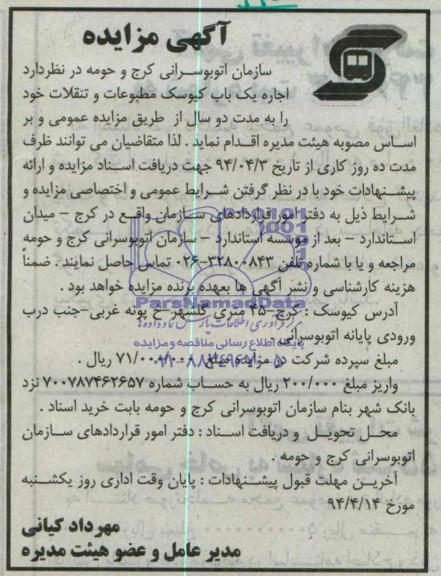 آگهی مزایده
سازمان اتوبوسرانی کرج و حومه در نظردارد
اجاره یک باب کیوسک مطبوعات و تنقلات خود
را به مدت دو سال از طریق مزایده عمومی و بر
اساس مصوبه هیئت مدیره اقدام نماید. لذا متقاضیان می توانند ظرف
مدت ده روز کاری از تاریخ ۹۴/۰۴/۳ جهت دریافت اسناد مزایده و ارائه
پیشنهادات خود با در نظر گرفتن شرایط عمومی و اختصاصی مزایده و
شرایط ذیل به دفتر امور قراردادهای سازمان واقع در کرج – میدان
استاندارد – بعد از موسسه استاندارد – سازمان اتوبوسرانی کرج و حومه
مراجعه و یا با شماره تلفن ۳۲۸۰۰۸۴۳-۰۲۶ تماس حاصل نمایند. ضمناً
هزینه کارشناسی و نشر آگهی ها بعهده برنده مزایده خواهد بود.
ParsNamadData
آدرس کیوسک : کرج-۴۵ متری گلشهر-خ پونه غربی-جنب درب
ورودی پایانه اتوبوسرانی
پایگاه اطلاع رسانی مناقصه و مزایده
مبلغ سپرده شرکت در مزایده مبلغ ریال.
واریز مبلغ ۲۰۰/۰۰۰ ریال به حساب شماره ۷۰۰۷۸۷۴۶۲۶۵۷ نزد
بانک شهر بنام سازمان اتوبوسرانی کرج و حومه بابت خرید اسناد.
محل تحویل و دریافت اسناد : دفتر امور قراردادهای سازمان
اتوبوسرانی کرج و حومه.
آخرین مهلت قبول پیشنهادات : پایان وقت اداری روز یکشنبه
مورخ ۹۴/۴/۱۴
مهرداد کیانی
مدیر عامل و عضو هیئت مدیره